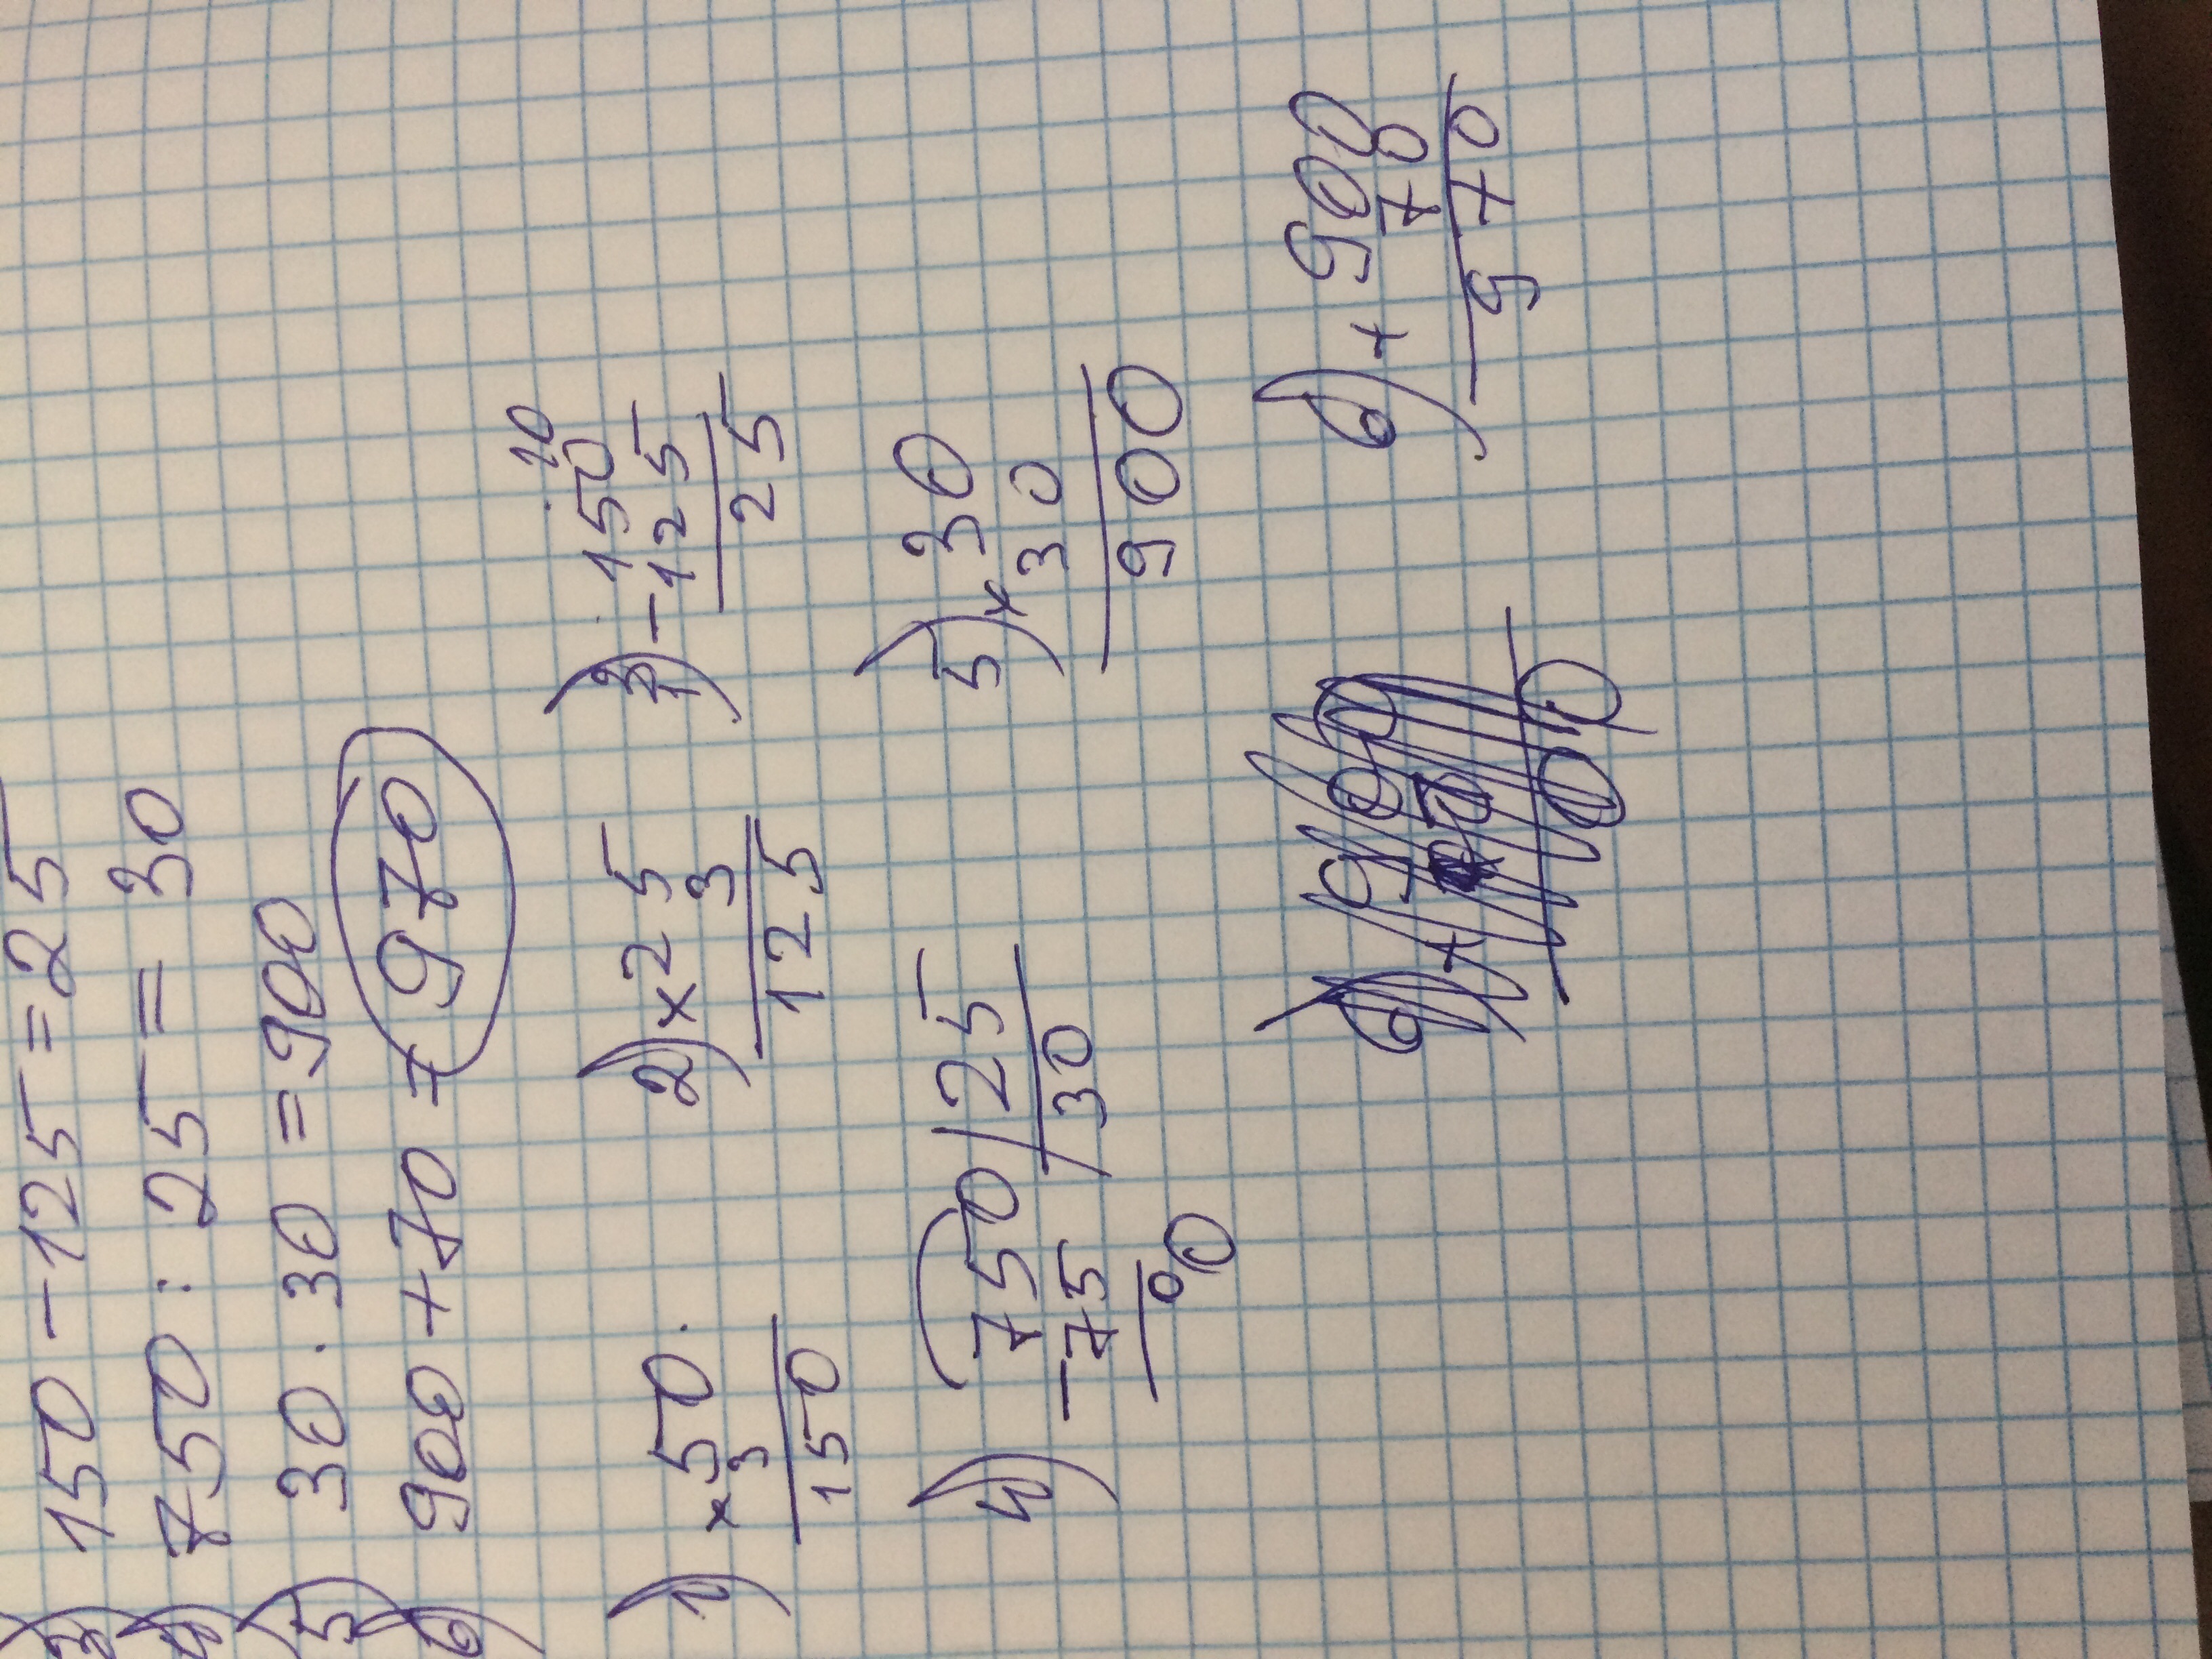 3) 150 - 125 = 25
4) 750 : 25 = 30
5) 30 · 30 = 900
6) 900 + 70 = 970
1) × 50
3
150
2) × 25
3
125
10
3) - 150
125
25
4) 750 / 25
- 75 30
00
5) × 30
30
900
6) + 900
70
970